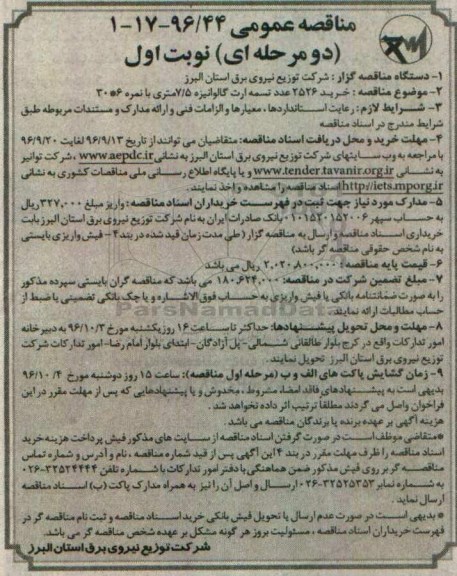 مناقصه عمومی ۹۶/۴۴-۱۷-۱
(دو مرحله ای) نوبت اول
۱- دستگاه مناقصه گزار : شرکت توزیع نیروی برق استان البرز
۲- موضوع مناقصه : خرید ۲۵۲۶ عدد تسمه ارت گالوانیزه ۷/۵متری با نمره ۶*۳۰
۳- شرایط لازم : رعایت استانداردها ، معیارها و الزامات فنی و ارائه مدارک و مستندات مربوطه طبق
شرایط مندرج در اسناد مناقصه
۴- مهلت خرید و محل دریافت اسناد مناقصه: متقاضیان می توانند از تاریخ ۹۶/۹/۱۳ لغایت ۹۶/۹/۲۰
با مراجعه به وب سایتهای شرکت توزیع نیروی برق استان البرز به نشانی www.aepdc.ir ، شرکت توانیر
به نشانی www.tender.tavanir.org.ir و یا پایگاه اطلاع رسانی ملی مناقصات کشوری به نشانی
http://iets.mporg.ir اسناد مناقصه را مشاهده و اخذ نمایند.
۵- مدارک مورد نیاز جهت ثبت در فهرست خریداران اسناد مناقصه: واریز مبلغ ۳۲۷,۰۰۰ ریال
به حساب سپهر ۰۱۰۱۵۲۰۱۵۲۰۰۶ بانک صادرات ایران به نام شرکت توزیع نیروی برق استان البرز بابت
خریداری اسناد مناقصه و ارسال به مناقصه گزار (طی مدت زمان قید شده در بند ۴ - فیش واریزی بایستی
به نام شخص حقوقی مناقصه گر باشد)
۶- قیمت پایه مناقصه : ۲,۰۲۰,۸۰۰,۰۰۰ ریال می باشد
۷- مبلغ تضمین شرکت در مناقصه: ۱۸۰,۶۲۴,۰۰۰ می باشد که مناقصه گران بایستی سپرده مذکور
را به صورت ضمانتنامه بانکی یا فیش واریزی به حساب فوق الاشاره و یا چک بانکی تضمینی یا ضبط از
حساب مطالبات ارائه نمایند.
۸- مهلت و محل تحویل پیشنهادها: حداکثر تا ساعت ۱۶ روز یکشنبه مورخ ۹۶/۱۰/۳ به دبیرخانه
امور تدارکات واقع در کرج بلوار طالقانی شمالی- پل آزادگان- ابتدای بلوار امام رضا- امور تدارکات شرکت
توزیع نیروی برق استان البرز تحویل نمایند.
۹- زمان گشایش پاکت های الف و ب (مرحله اول مناقصه): ساعت ۱۵ روز دوشنبه مورخ ۹۶/۱۰/۴
بدیهی است به پیشنهادهای فاقد امضا، مشروط ، مخدوش و یا پیشنهادهایی که پس از مهلت مقرر در این
فراخوان واصل می گردند مطلقا ترتیب اثر داده نخواهد شد.
هزینه آگهی بر عهده برنده یا برندگان مناقصه می باشد.
*متقاضی موظف است در صورت گرفتن اسناد مناقصه از سایت های مذکور فیش پرداخت هزینه خرید
اسناد مناقصه را ظرف مهلت مقرر در بند ۴ این آگهی پس از قید شماره مناقصه ، نام و آدرس و شماره تماس
مناقصه گر بر روی فیش مذکور ضمن هماهنگی با دفتر امور تدارکات با شماره تلفن ۳۲۵۲۴۴۴۴-۰۲۶
به شماره نمابر ۳۲۵۲۵۳۵۳-۰۲۶ ارسال و اصل آن را نیز به همراه مدارک پاکت (ب) اسناد مناقصه
ارسال نماید.
* بدیهی است در صورت عدم ارسال یا تحویل فیش بانکی خرید اسناد مناقصه و ثبت نام مناقصه گر در
فهرست خریداران اسناد مناقصه ، مسئولیت بروز هر گونه مشکل بر عهده شخص مناقصه گر می باشد.
شرکت توزیع نیروی برق استان البرز